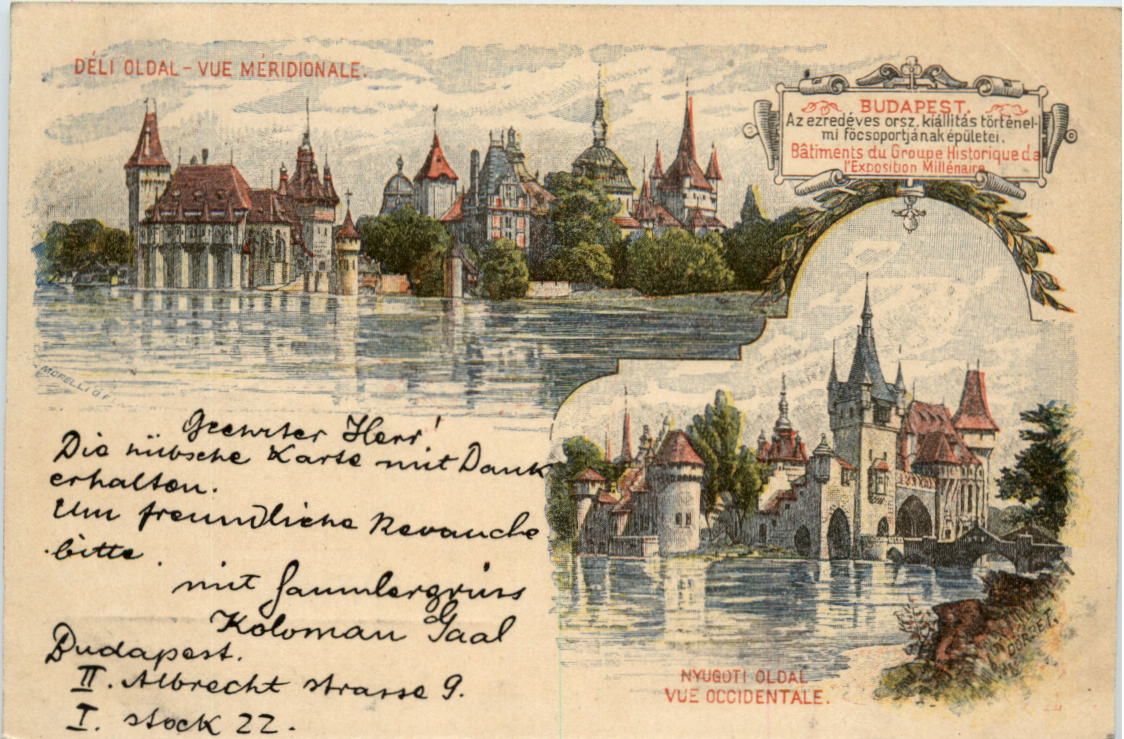 DÉLI OLDAL - VUE MÉRIDIONALE.
BUDAPEST.
Az ezredéves orsz. kiállitás történel-
mi föcsoportjának épületei.
Bâtiments du Groupe Historique da
l'Exposition Millénaire
MORELLI G.F.
Geehrter Herr!
Die hübsche Karte mit Dank
erhalten.
Um freundliche Revanche
bitte.
mit Sammlergruss
Koloman Gaal
Budapest.
II. Albrecht strasse 9.
I. stock 22.
DÖRRE T.
NYUGOTI OLDAL
VUE OCCIDENTALE.